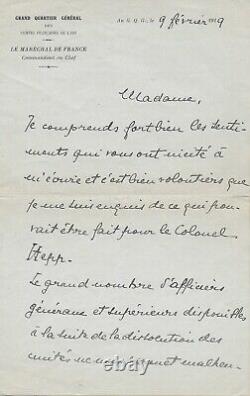 GRAND QUARTIER GÉNÉRAL
DES
ARMÉES FRANÇAISES DE L'EST
LE MARÉCHAL DE FRANCE
Commandant en Chef
Au G. Q. G., le 9 février 1919
Madame,
Je comprends fort bien les senti-
ments qui vous ont incité à
m'écrire et c'est bien volontiers que
je me suis enquis de ce qui pou-
vait être fait pour le Colonel
Hepp.
Le grand nombre d'officiers
généraux et supérieurs disponibles
à la suite de la dissolution des
unités ne me permet malheu-